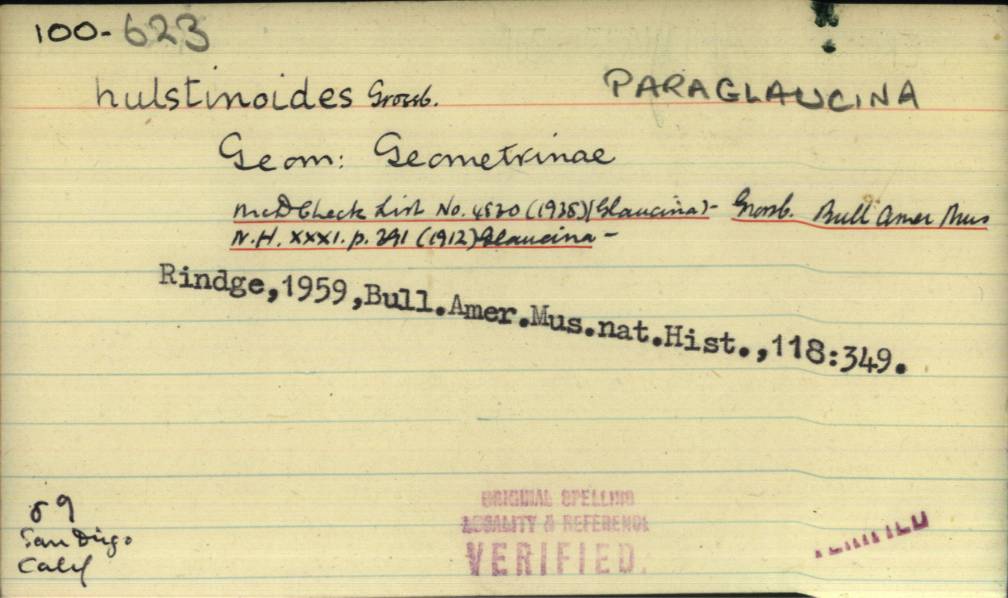 100-623
hulstinoides Grossb. PARAGLAUCINA
Geom: Geometrinae
McD Check List No. 4530 (1938) (Glaucina) - Grossb. Bull Amer Mus
N.H. XXXI. p. 391 (1912) Glaucina -
Rindge,1959,Bull.Amer.Mus.nat.Hist.,118:349.
San Diego
Calif
ORIGINAL SPELLING
LOCALITY & REFERENCE
VERIFIED.
VERIFIED